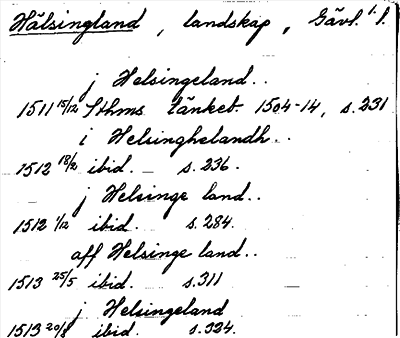 Hälsingland, landskap, Gävl. l.
j Helsingeland..
1511 15/12 Sthms tänkeb. 1504-14, s. 231
i Helsinghelandh..
1512 18/2 ibid. s. 236.
j Helsinge land..
1512 1/12 ibid. s. 284.
aff Helsinge land..
1513 25/5 ibid. s. 311
j Helsingeland
1513 20/8 ibid. s. 324.